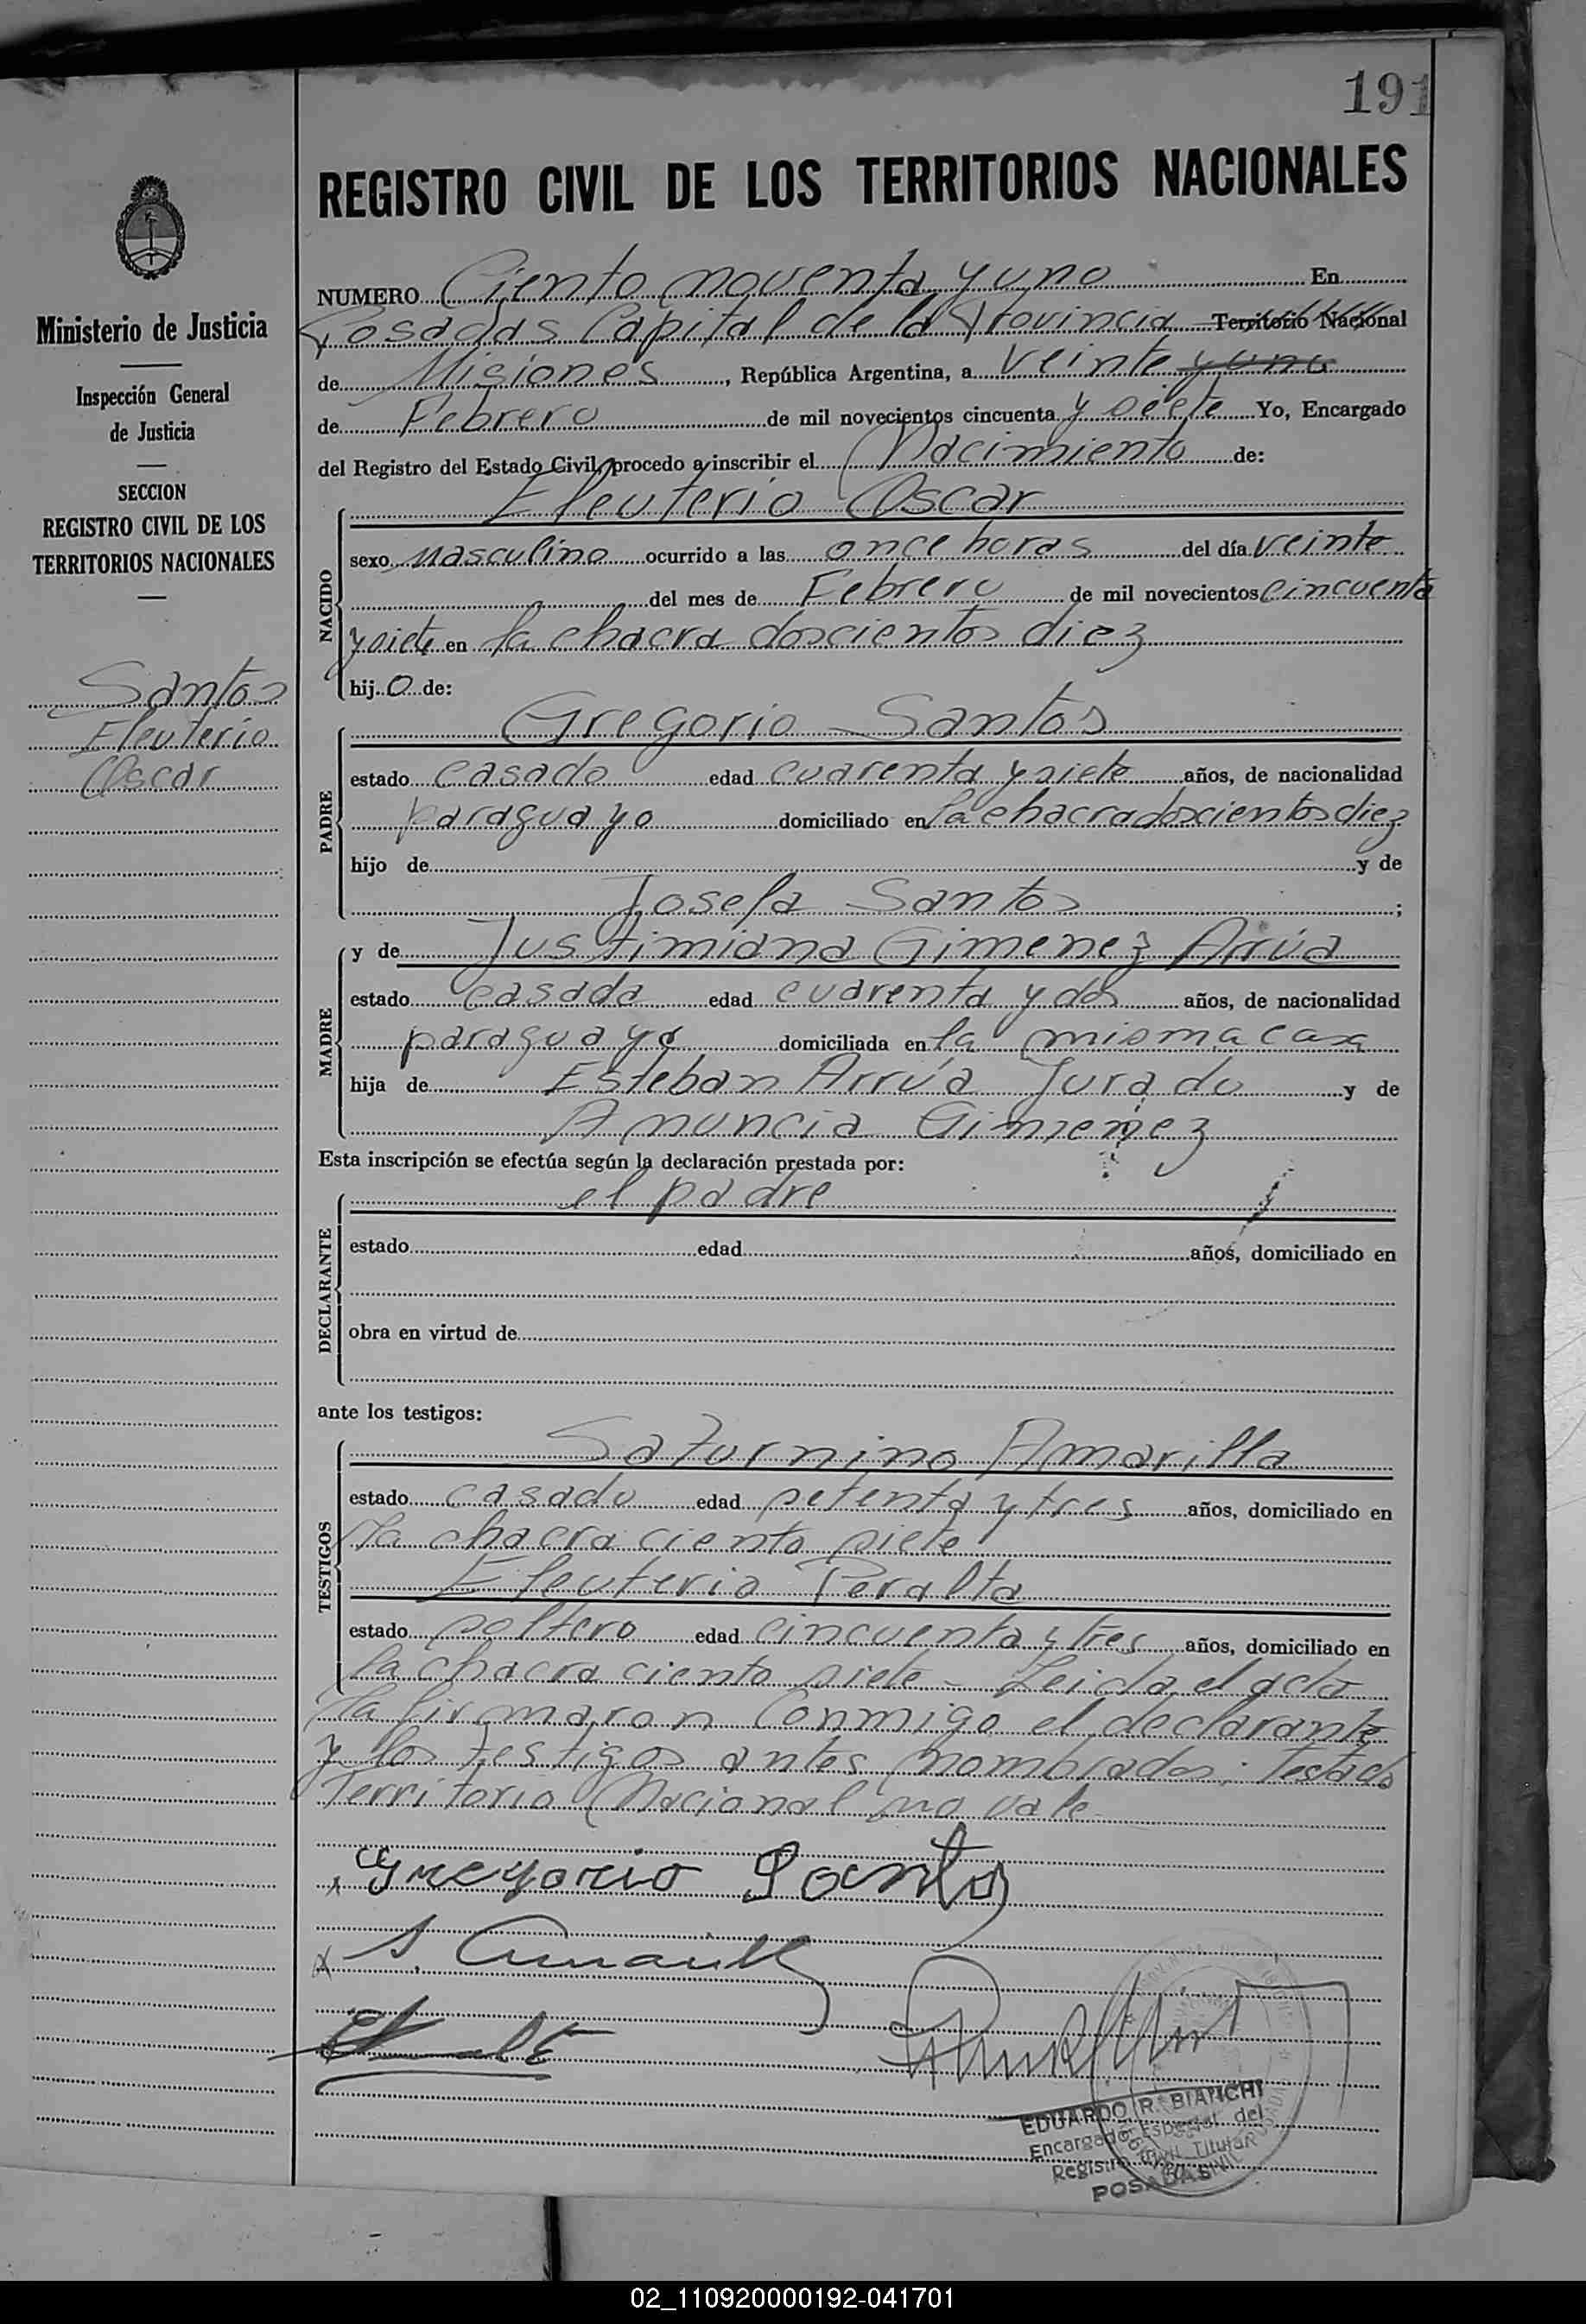 191
REGISTRO CIVIL DE LOS TERRITORIOS NACIONALES
Ministerio de Justicia
Inspección General
de Justicia
SECCION
REGISTRO CIVIL DE LOS
TERRITORIOS NACIONALES
Santos
Eleuterio
Oscar
NUMERO Ciento noventa y uno En
Posadas Capital de la Provincia Territorio Nacional
de Misiones, República Argentina, a veinte y uno
de Febrero de mil novecientos cincuenta y siete Yo, Encargado
del Registro del Estado Civil, procedo a inscribir el Nacimiento de:
NACIDO
Eleuterio Oscar
sexo Masculino ocurrido a las once horas del día veinte
del mes de Febrero de mil novecientos cincuenta
y siete en la chacra doscientos diez
hijo de:
PADRE
Gregorio Santos
estado casado edad cuarenta y siete años, de nacionalidad
paraguayo domiciliado en la chacra doscientos diez
hijo de y de
Josefa Santos;
MADRE
y de Justimiana Gimenez Arrúa
estado casada edad cuarenta y dos años, de nacionalidad
paraguaya domiciliada en la misma casa
hija de Esteban Arrúa Jurado y de
Anuncia Gimenez
Esta inscripción se efectúa según la declaración prestada por:
DECLARANTE
el padre
estado edad años, domiciliado en
obra en virtud de
ante los testigos:
TESTIGOS
Saturnino Amarilla
estado casado edad setenta y tres años, domiciliado en
la chacra ciento siete
Eleuterio Peralta
estado soltero edad cincuenta y tres años, domiciliado en
la chacra ciento siete - Leida el acta
la firmaron conmigo el declarante
y los testigos antes nombrados: Testado
Territorio Nacional no vale
Gregorio Santos
S. Amarilla
EDUARDO R. BIANCHI
Encargado Especial del
Registro Civil Titular
POSADAS
02_110920000192-041701